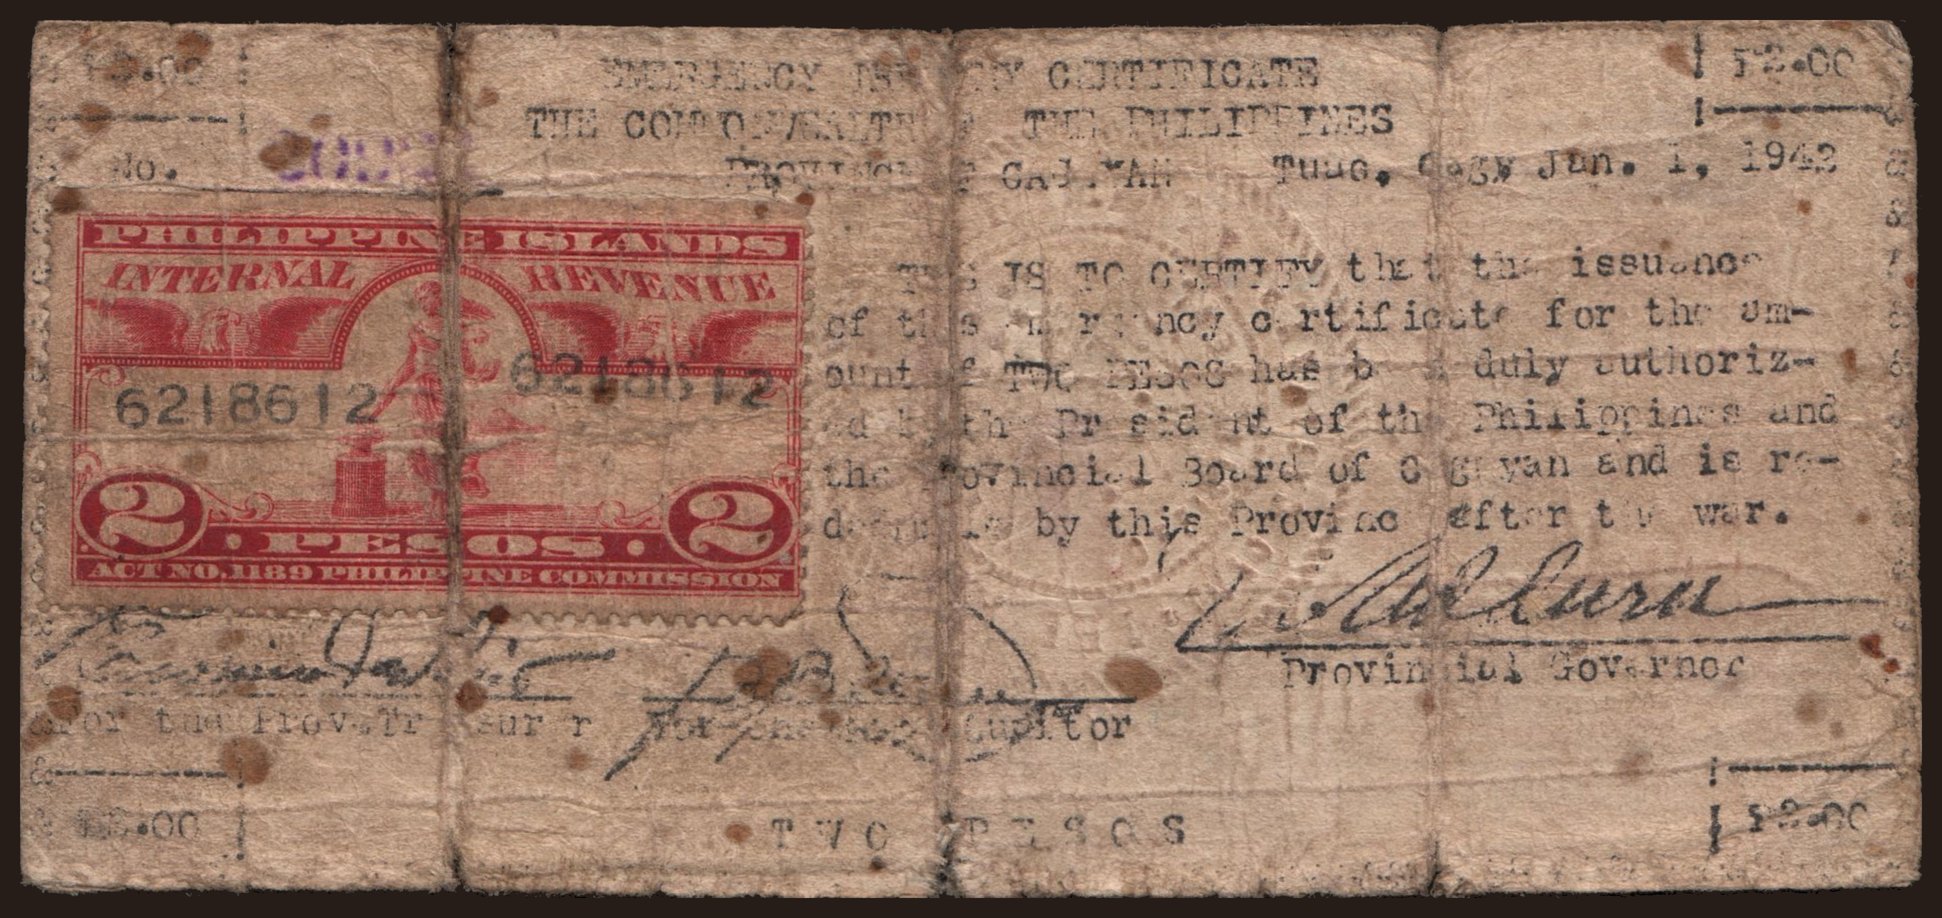 ₱2.00
EMERGENCY CERTIFICATE
₱2.00
THE COMMONWEALTH THE PHILIPPINES
No.
PROVINCE OF CAGAYAN Tuao, Cagy, Jan. 1, 1942
PHILIPPINE ISLANDS
INTERNAL REVENUE
6218612
6218612
2 PESOS 2
ACT NO. 1189 PHILIPPINE COMMISSION
THIS IS TO CERTIFY that the issuance
of this emergency certificate for the am-
ount of TWO PESOS has been duly authoriz-
ed by the President of the Philippines and
the Provincial Board of Cagayan and is re-
deemable by this Province after the war.
Provincial Governor
For the Prov. Treasurer
For the Auditor
₱2.00
TWO PESOS
₱2.00